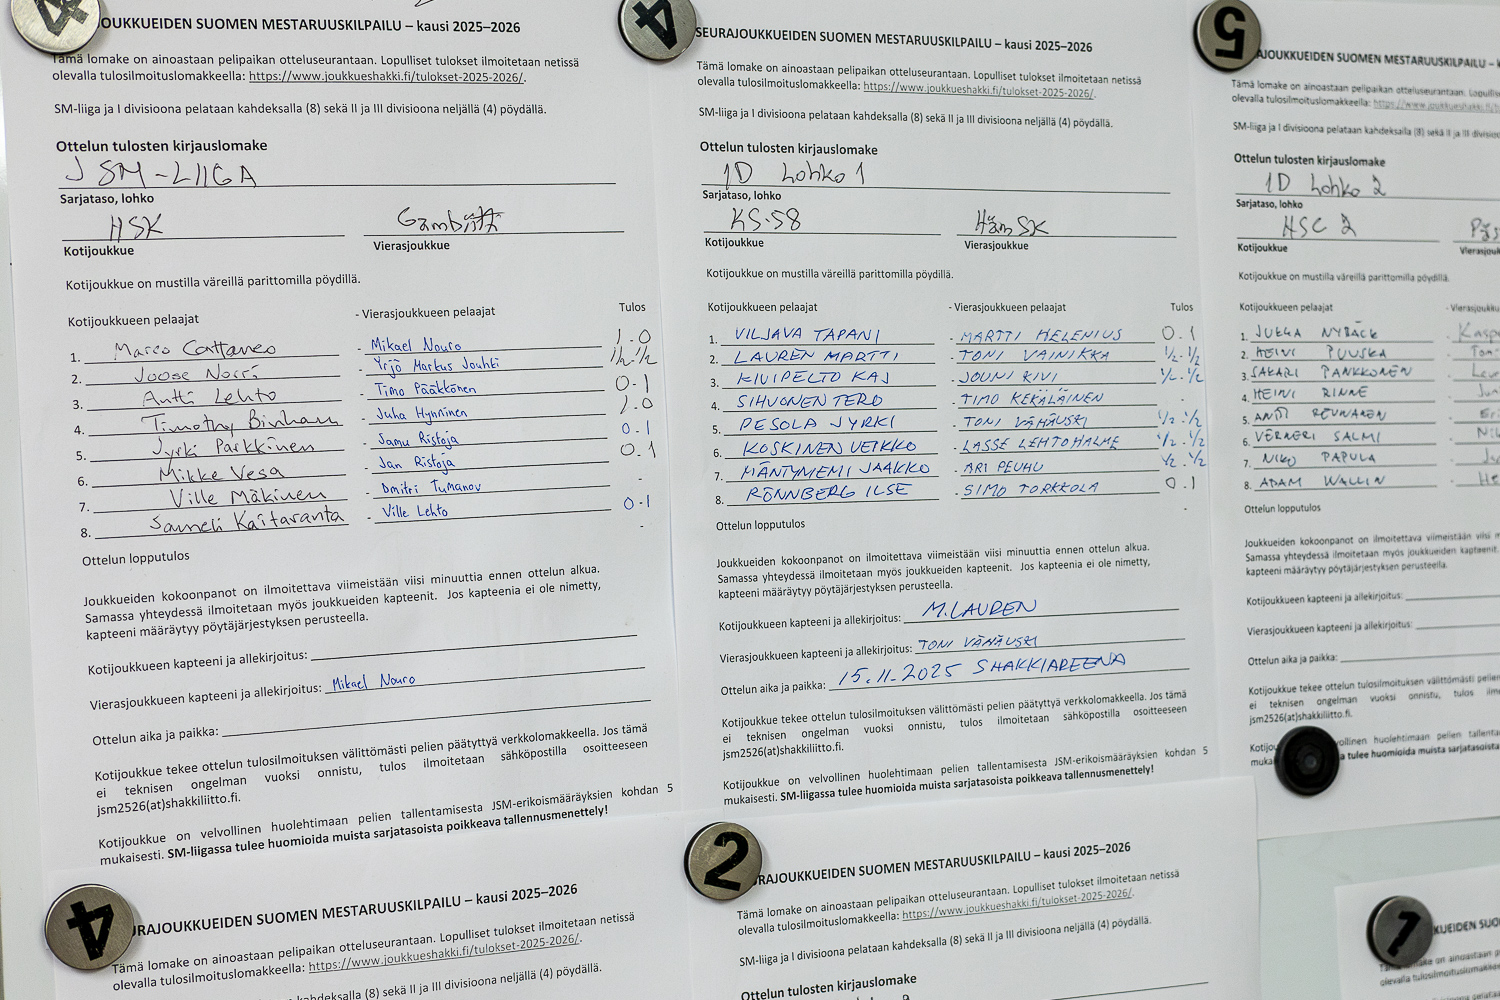 4
OUKKUEIDEN SUOMEN MESTARUUSKILPAILU – kausi 2025–2026
Tämä lomake on ainoastaan pelipaikan otteluseurantaan. Lopulliset tulokset ilmoitetaan netissä
olevalla tulosilmoituslomakkeella: https://www.joukkueshakki.fi/tulokset-2025-2026/.
SM-liiga ja I divisioona pelataan kahdeksalla (8) sekä II ja III divisioona neljällä (4) pöydällä.
Ottelun tulosten kirjauslomake
JSM-LIIGA
Sarjataso, lohko
HSK
Kotijoukkue Vierasjoukkue
Kotijoukkue on mustilla väreillä parittomilla pöydillä.
Kotijoukkueen pelaajat - Vierasjoukkueen pelaajat Tulos
1. Marco Cattaneo - Mikael Nouro 1-0
2. Joose Norri - Yrjö Markus Jouhti ½-½
3. Antti Lehto - Timo Pääkkönen 0-1
4. Timothy Binham - Juha Hynninen 1-0
5. Jyrki Parkkinen - Samu Ristoja 0-1
6. Mikke Vesa - Jan Ristoja 0-1
7. Ville Mäkinen - Dmitri Tumanov -
8. Sameli Kaitaranta - Ville Lehto 0-1
Ottelun lopputulos -
Joukkueiden kokoonpanot on ilmoitettava viimeistään viisi minuuttia ennen ottelun alkua.
Samassa yhteydessä ilmoitetaan myös joukkueiden kapteenit. Jos kapteenia ei ole nimetty,
kapteeni määräytyy pöytäjärjestyksen perusteella.
Kotijoukkueen kapteeni ja allekirjoitus:
Vierasjoukkueen kapteeni ja allekirjoitus: Mikael Nouro
Ottelun aika ja paikka:
Kotijoukkue tekee ottelun tulosilmoituksen välittömästi pelien päätyttyä verkkolomakkeella. Jos tämä
ei teknisen ongelman vuoksi onnistu, tulos ilmoitetaan sähköpostilla osoitteeseen
jsm2526(at)shakkiliitto.fi.
Kotijoukkue on velvollinen huolehtimaan pelien tallentamisesta JSM-erikoismääräyksien kohdan 5
mukaisesti. SM-liigassa tulee huomioida muista sarjatasoista poikkeava tallennusmenettely!
4
SEURAJOUKKUEIDEN SUOMEN MESTARUUSKILPAILU – kausi 2025–2026
Tämä lomake on ainoastaan pelipaikan otteluseurantaan. Lopulliset tulokset ilmoitetaan netissä
olevalla tulosilmoituslomakkeella: https://www.joukkueshakki.fi/tulokset-2025-2026/.
SM-liiga ja I divisioona pelataan kahdeksalla (8) sekä II ja III divisioona neljällä (4) pöydällä.
Ottelun tulosten kirjauslomake
1D Lohko 1
Sarjataso, lohko
KS-58 HämSK
Kotijoukkue Vierasjoukkue
Kotijoukkue on mustilla väreillä parittomilla pöydillä.
Kotijoukkueen pelaajat - Vierasjoukkueen pelaajat Tulos
1. VILJAVA TAPANI - MARTTI HELENIUS 0-1
2. LAUREN MARTTI - TONI VAINIKKA ½-½
3. KIVIPELTO KAJ - JOUNI KIVI ½-½
4. SIHVONEN TERO - TIMO KEKÄLÄINEN -
5. PESOLA JYRKI - TONI VÄHÄUSKI ½-½
6. KOSKINEN VEIKKO - LASSE LEHTOHALME ½-½
7. MÄNTYNIEMI JAAKKO - ARI PEUHU ½-½
8. RÖNNBERG ILSE - SIMO TORKKOLA 0-1
Ottelun lopputulos -
Joukkueiden kokoonpanot on ilmoitettava viimeistään viisi minuuttia ennen ottelun alkua.
Samassa yhteydessä ilmoitetaan myös joukkueiden kapteenit. Jos kapteenia ei ole nimetty,
kapteeni määräytyy pöytäjärjestyksen perusteella.
Kotijoukkueen kapteeni ja allekirjoitus: M. LAUREN
Vierasjoukkueen kapteeni ja allekirjoitus: TONI VÄHÄUSKI
Ottelun aika ja paikka: 15.11.2025 SHAKKIAREENA
Kotijoukkue tekee ottelun tulosilmoituksen välittömästi pelien päätyttyä verkkolomakkeella. Jos tämä
ei teknisen ongelman vuoksi onnistu, tulos ilmoitetaan sähköpostilla osoitteeseen
jsm2526(at)shakkiliitto.fi.
Kotijoukkue on velvollinen huolehtimaan pelien tallentamisesta JSM-erikoismääräyksien kohdan 5
mukaisesti. SM-liigassa tulee huomioida muista sarjatasoista poikkeava tallennusmenettely!
5
AJOUKKUEIDEN SUOMEN MESTARUUSKILPAILU –
Tämä lomake on ainoastaan pelipaikan otteluseurantaan.
olevalla tulosilmoituslomakkeella:
SM-liiga ja I divisioona pelataan kahdeksalla (8) sekä II ja III
Ottelun tulosten kirjauslomake
1D Lohko 2
Sarjataso, lohko
HSC 2
Kotijoukkue
Kotijoukkue on mustilla väreillä parittomilla pöydillä.
Kotijoukkueen pelaajat
1. JUKKA NYBÄCK
2. HEINI PUUSKA
3. SAKARI PANKKONEN
4. HEINI RINNE
5. ANTI REUNANEN
6. VERNERI SALMI
7. NIKO PAPULA
8. ADAM WALLIN
Ottelun lopputulos
Joukkueiden kokoonpanot on ilmoitettava viimeistään viisi
Samassa yhteydessä ilmoitetaan myös joukkueiden kapteenit.
kapteeni määräytyy pöytäjärjestyksen perusteella.
Kotijoukkueen kapteeni ja allekirjoitus:
Vierasjoukkueen kapteeni ja allekirjoitus:
Ottelun aika ja paikka:
Kotijoukkue tekee ottelun tulosilmoituksen välittömästi
ei teknisen ongelman vuoksi onnistu, tulos
jsm2526(at)shakkiliitto.fi.
huolehtimaan pelien
tulee huomioida muista sarjatasoista
4
RAJOUKKUEIDEN SUOMEN MESTARUUSKILPAILU – kausi 2025–2026
Tämä lomake on ainoastaan pelipaikan otteluseurantaan. Lopulliset tulokset ilmoitetaan netissä
olevalla tulosilmoituslomakkeella: https://www.joukkueshakki.fi/tulokset-2025-2026/.
kahdeksalla (8) sekä II ja III divisioona neljällä (4) pöydällä.
2
RAJOUKKUEIDEN SUOMEN MESTARUUSKILPAILU – kausi 2025–2026
Tämä lomake on ainoastaan pelipaikan otteluseurantaan. Lopulliset tulokset ilmoitetaan netissä
olevalla tulosilmoituslomakkeella: https://www.joukkueshakki.fi/tulokset-2025-2026/.
SM-liiga ja I divisioona pelataan kahdeksalla (8) sekä II ja III divisioona neljällä (4) pöydällä.
Ottelun tulosten kirjauslomake
1
KUEIDEN SUO
on ainoastaan